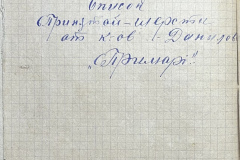 Список
Принятой шерсти
от к-ов с. Данилов
"Примарі".